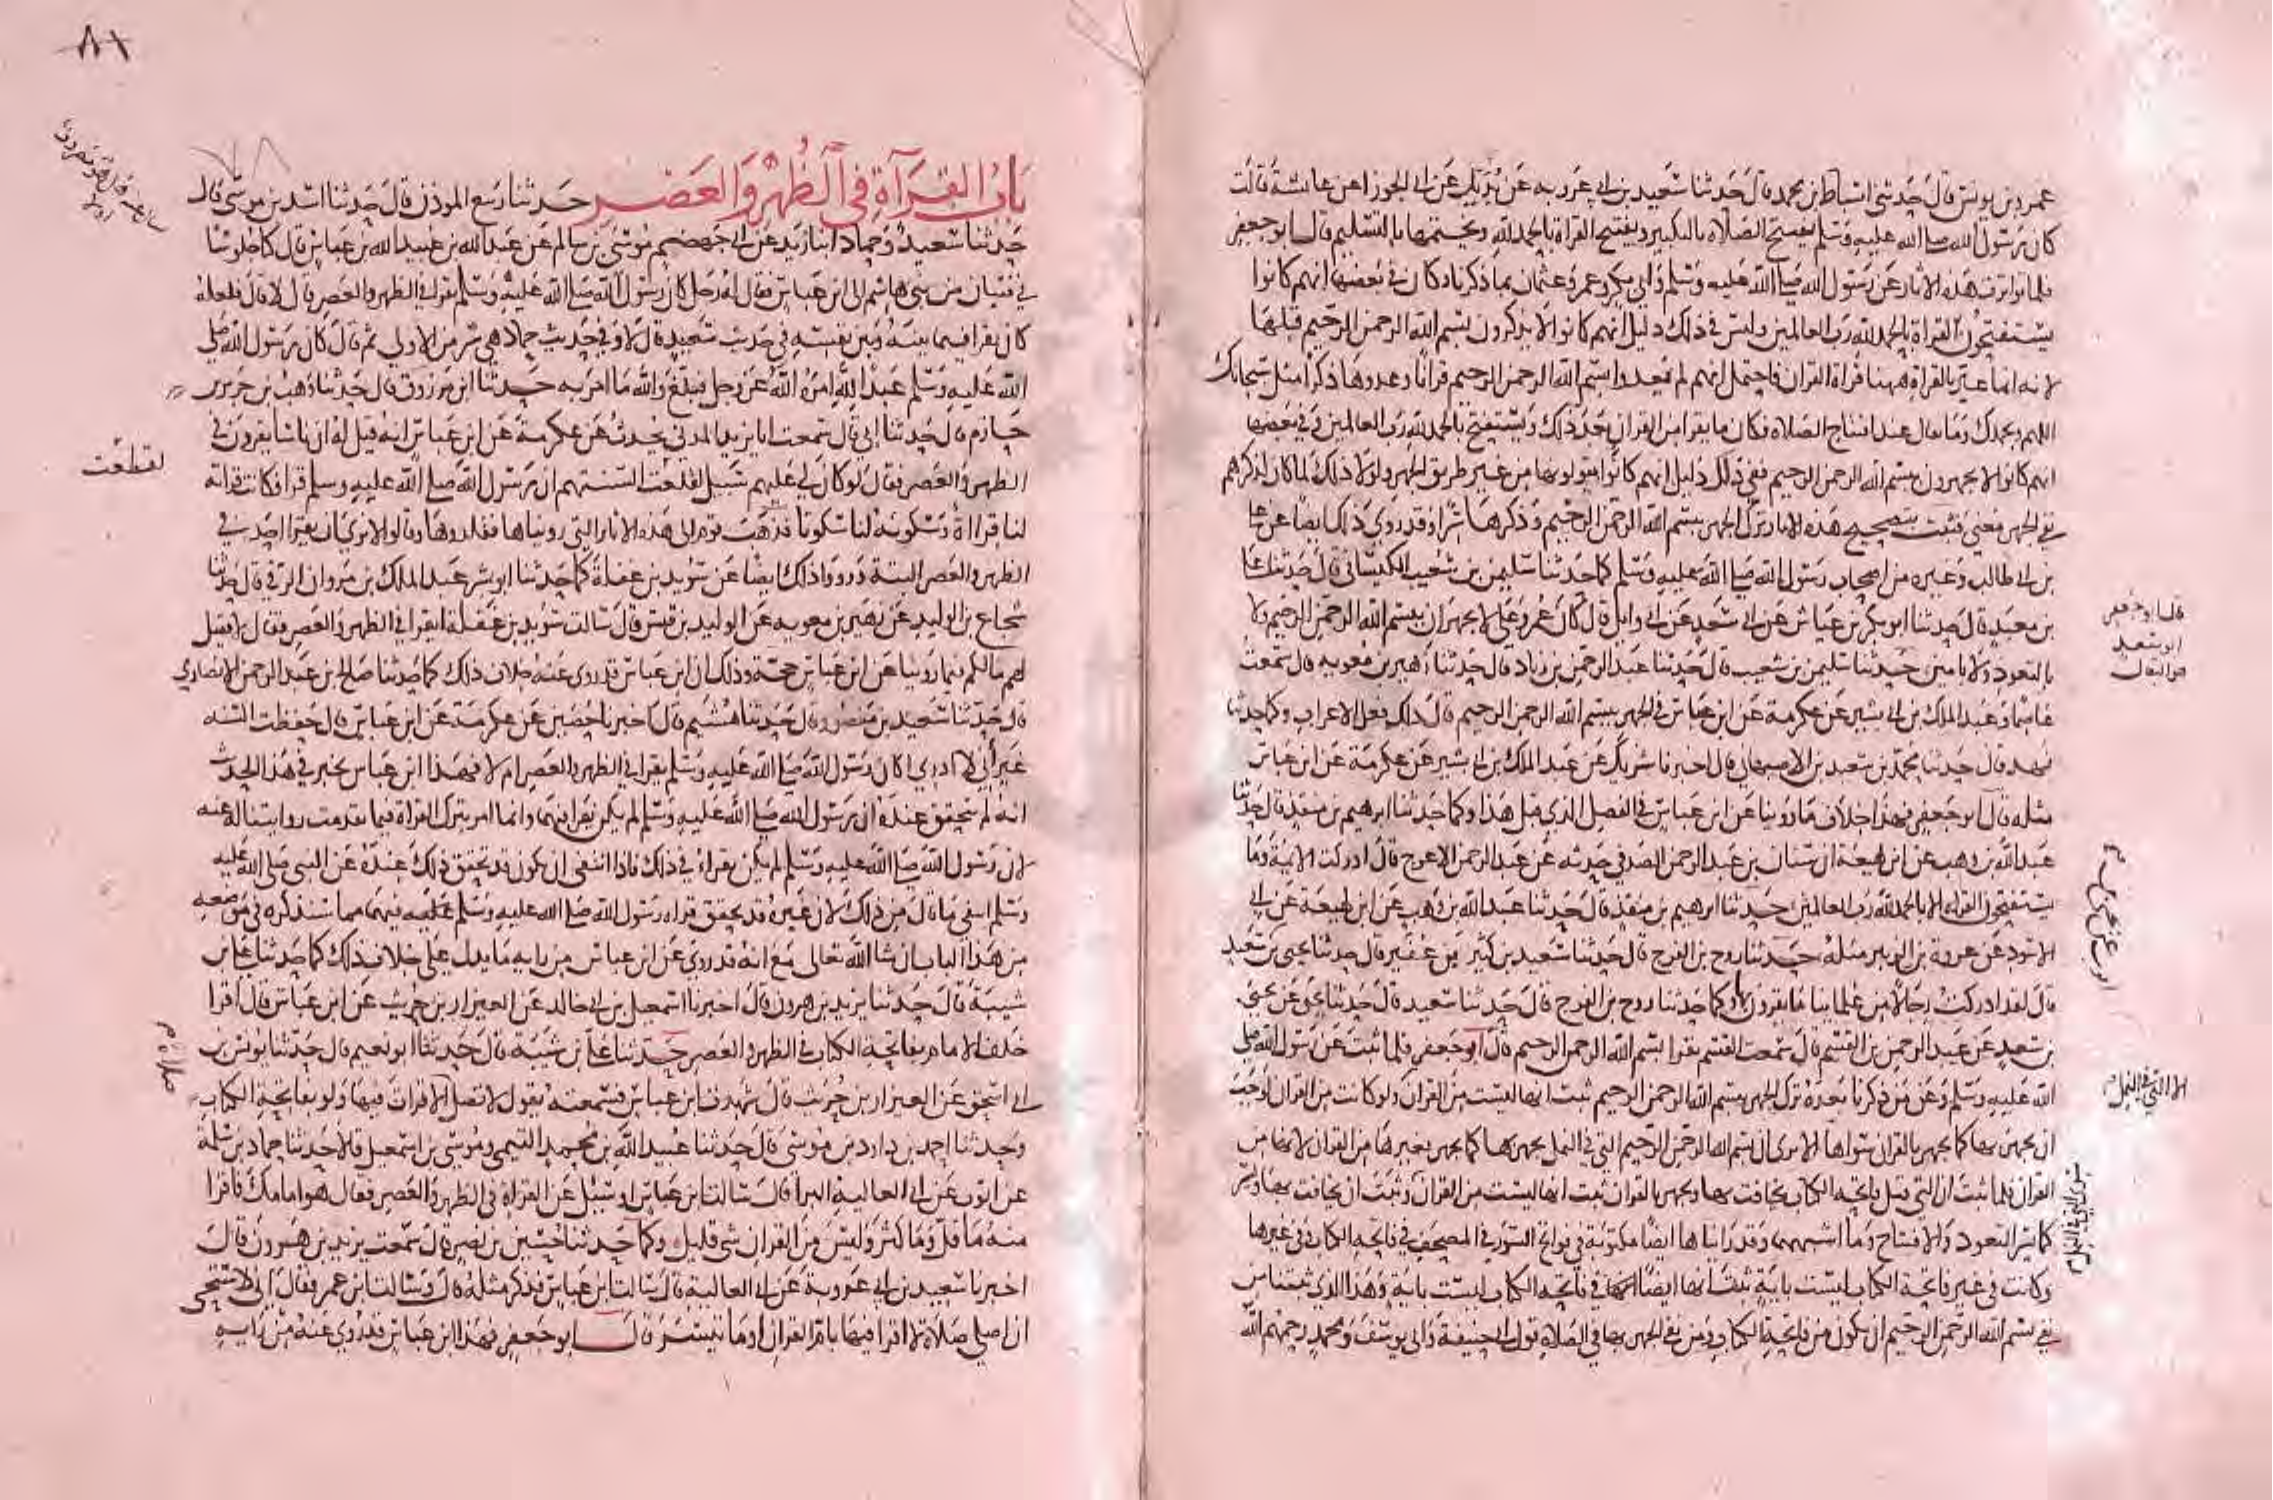 عمرو بن يونس قال حدثنى اسباط بن محمد قال حدثنا سعيد بن ابى عروبه عن بديل عن ابى الجوزا عن عايشة قالت
كان رسول الله صلى الله عليه وسلم يفتتح الصلاه بالتكبير ويفتتح القراة بالحمد لله ويختمها بالتسليم قال ابو جعفر
فلما تواترت هذه الاثار عن رسول الله صلى الله عليه وسلم وابى بكر وعمر وعثمان بما ذكرنا وكان فى بعضها انهم كانوا
يستفتحون القراة بالحمد لله رب العالمين وليس فى ذلك دليل انهم كانوا لا يذكرون بسم الله الرحمن الرحيم قبلها
لانه انما عنى بالقراة ههنا قراة القران فاحتمل انهم لم يعدوا بسم الله الرحمن الرحيم قرانا وعدوها ذكرا مثل سبحانك
اللهم وبحمدك وما يقال عند افتتاح الصلاه فكان ما يقرا من القران بعد ذلك ويستفتح بالحمد لله رب العالمين وفى بعضها
انهم كانوا لا يجهرون ببسم الله الرحمن الرحيم ففى ذلك دليل انهم كانوا يقولونها من غير طريق الجهر ولولا ذلك لما كان لذكرهم
نفى الجهر معنى فثبت بتصحيح هذه الاثار ترك الجهر ببسم الله الرحمن الرحيم وذكرها سرا وقد روى ذلك ايضا عن على
بن ابى طالب وغيره من اصحاب رسول الله صلى الله عليه وسلم كما حدثنا سليمن بن شعيب الكيسانى قال حدثنا على
بن معبد قال حدثنا ابو بكر بن عياش عن ابى سعد عن ابى وايل قال كان عمر وعلى لا يجهران ببسم الله الرحمن الرحيم ولا
بالتعوذ ولا بامين حدثنا سليمن بن شعيب قال حدثنا عبد الرحمن بن زياد قال حدثنا زهير بن معويه قال سمعت
عاصما وعبد الملك بن ابى بشير عن عكرمة عن ابن عباس فى الجهر ببسم الله الرحمن الرحيم قال ذلك فعل الاعراب وكما حدثنا
فهد قال حدثنا محمد بن سعيد بن الاصبهانى قال اخبرنا شريك عن عبد الملك بن ابى بشير عن عكرمة عن ابن عباس
مثله قال ابو جعفر فهذا خلاف ما روينا عن ابن عباس فى الفصل الذى قبل هذا وكما حدثنا ابرهيم بن منقذ قال حدثنا
عبد الله بن وهب عن ابن لهيعة ان سنان بن عبد الرحمن الصدفى حدثه عن عبد الرحمن الاعرج قال ادركت الايمة وما
يستفتحون القراه الا بالحمد لله رب العالمين حدثنا ابرهيم بن منقذ قال حدثنا عبد الله بن وهب عن ابن لهيعة عن ابى
الاسود عن عروة بن الزبير مثله حدثنا روح بن الفرج قال حدثنا سعيد بن كثير بن عفير قال حدثنا يحيى بن سعيد
قال لقد ادركت رجالا من علماينا ما يقرون بها وكما حدثنا روح بن الفرج قال حدثنا سعيد قال حدثنا يحيى عن يحيى
بن سعيد عن عبد الرحمن بن القسم قال سمعت القسم يقرا بسم الله الرحمن الرحيم قال ابو جعفر فلما ثبت عن رسول الله صلى
الله عليه وسلم وعن من ذكرنا بعده ترك الجهر ببسم الله الرحمن الرحيم ثبت انها ليست من القران ولو كانت من القران لوجب
ان يجهر بها كما يجهر بالقران سواها الا ترى ان بسم الله الرحمن الرحيم التى فى النمل يجهر بها كما يجهر بغيرها من القران لانها من
القران فلما ثبت ان التى قبل فاتحه الكتاب يخافت بها ويجهر بالقران ثبت انها ليست من القران وثبت ان يخافت بها وتسر
كما يسر التعوذ والافتتاح وما اشبههما وقد رايناها ايضا مكتوبة فى فواتح السور فى المصحف فى فاتحه الكتاب وفى غيرها
وكانت فى غير فاتحة الكتاب ليست باية ثبت انها ايضا فى فاتحه الكتاب ليست باية وهذا الذى ثبتنا من
نفى بسم الله الرحمن الرحيم ان يكون من فاتحة الكتاب ومن نفى الجهر بها فى الصلاه قول ابى حنيفة وابى يوسف ومحمد رحمهم الله
قال ابو جعفر
ابو سعد
هو البقال
الا التى فى النمل
سوى التى فى النمل
٨١
باب القرآة فى الظهر والعصر حدثنا ربيع الموذن قال حدثنا اسد بن موسى قال
حدثنا سعيد وحماد ابنا زيد عن ابى جهضم موسى بن سالم عن عبد الله بن عبيد الله بن عباس قال كنا جلوسا
فى فتيان من بنى هاشم الى ابن عباس فقال له رجل اكان رسول الله صلى الله عليه وسلم يقرا فى الظهر والعصر قال لا قال فلعله
كان يقرا فيما بينه وبين نفسه فى حديث سعيد قال لا وفى حديث حماد هى شر من الاولى ثم قال كان رسول الله صلى
الله عليه وسلم عبدا لله امره الله عز وجل فبلغ والله ما امر به حدثنا ابن مرزوق قال حدثنا وهب بن جرير بن
حازم قال حدثنا ابى قال سمعت ابا يزيد المدنى يحدث عن عكرمة عن ابن عباس انه قيل له ان ناسا يقرون فى
الظهر والعصر فقال لو كان لى عليهم سبيل لقلعت السنتهم ان رسول الله صلى الله عليه وسلم قرا فكانت قراته
لنا قراة وسكوته لنا سكوتا فذهب قوم الى هذه الاثار التى رويناها فقلدوها وقالوا لا نرى ان يقرا احد فى
الظهر والعصر البتة ورووا ذلك ايضا عن سويد بن غفلة كما حدثنا ابو بشر عبد الملك بن مروان الرقى قال حدثنا
شجاع بن الوليد عن زهير بن معويه عن الوليد بن قيس قال سالت سويد بن غفلة ايقرا فى الظهر والعصر فقال لا فقيل
لهم ما لكم فيما روينا عن ابن عباس حجة وذلك ان ابن عباس قد روى عنه خلاف ذلك كما حدثنا صالح بن عبد الرحمن الانصارى
قال حدثنا سعيد بن منصور قال حدثنا هشيم قال اخبرنا حصين عن عكرمة عن ابن عباس قال حفظت السنه
غير انى لا ادرى اكان رسول الله صلى الله عليه وسلم يقرا فى الظهر والعصر ام لا فهذا ابن عباس يخبر فى هذا الحديث
انه لم يتحقق عنده ان رسول الله صلى الله عليه وسلم لم يكن يقرا فيهما وانما امر بترك القراة فيما تقدمت روايتنا له عنه
لان رسول الله صلى الله عليه وسلم لم يكن يقرا فى ذلك فاذا انتفى ان يكون قد تحقق ذلك عنده عن النبى صلى الله عليه
وسلم انتفى ما قال من ذلك لان غيره قد تحقق قراة رسول الله صلى الله عليه وسلم فيهما مما سنذكره فى موضعه
من هذا الباب ان شا الله تعالى مع انه قد روى عن ابن عباس من رايه ما يدل على خلاف ذلك كما حدثنا على بن
شيبة قال حدثنا يزيد بن هرون قال اخبرنا اسمعيل بن ابى خالد عن العيزار بن حريث عن ابن عباس قال اقرا
خلف الامام بفاتحة الكتاب فى الظهر والعصر حدثنا على بن شيبة قال حدثنا ابو نعيم قال حدثنا يونس بن
ابى اسحق عن العيزار بن حريث قال شهدت ابن عباس فسمعته يقول لا تصل الا قرات فيها ولو بفاتحة الكتاب
وحدثنا احمد بن داود بن موسى قال حدثنا عبيد الله بن محمد التيمى وموسى بن اسمعيل قالا حدثنا حماد بن سلمة
عن ايوب عن ابى العالية البرا قال سالت ابن عباس او سيل عن القراة فى الظهر والعصر فقال هو امامك فاقرا
منه ما قل وما كثر وليس من القران شى قليل وكما حدثنا حسين بن نصر قال سمعت يزيد بن هرون قال
اخبرنا سعيد بن ابى عروبة عن ابى العالية قال سالت ابن عباس فذكر مثله قال وسالت ابن عمر فقال انى لاستحى
ان اصلى صلاة لا اقرا فيها بام القران او ما تيسر قال ابو جعفر فهذا ابن عباس قد روى عنه من رايه
لقطعت
صلاة